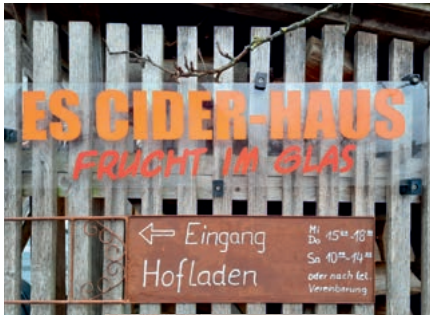 ES CIDER-HAUS
FRUCHT IM GLAS
← Eingang
Hofladen
Mi
Do 15⁰⁰-18⁰⁰
Sa 10⁰⁰-14⁰⁰
oder nach tel.
Vereinbarung